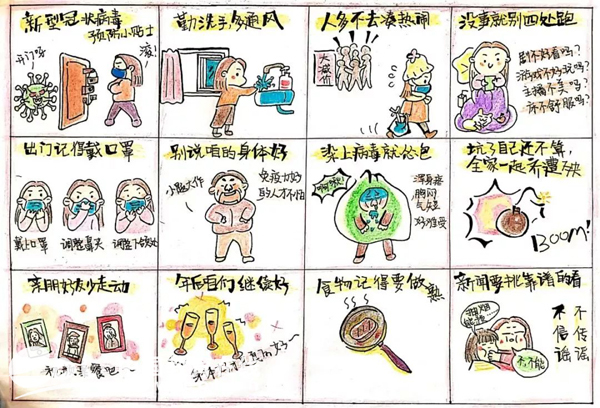 新型冠状病毒
预防小贴士
开门呀
滚!
勤洗手多通风
人多不去凑热闹
大减价
没事就别四处跑
剧不好看吗?
游戏不好玩吗?
主播不美吗?
床不舒服吗?
出门记得戴口罩
戴上口罩
调整鼻夹
别说咱的身体好
小题大作
免疫力好
的人才不怕
染上病毒就怂包
啊啾!
浑身疼
胸闷
气短
好难受
坑了自己还不算,
全家一起齐遭殃
BOOM!
亲朋好友少走动
年后咱们继续好
食物记得要做熟
新闻要挑靠谱的看
抽烟
能预…
不,不能
不信谣
不传谣